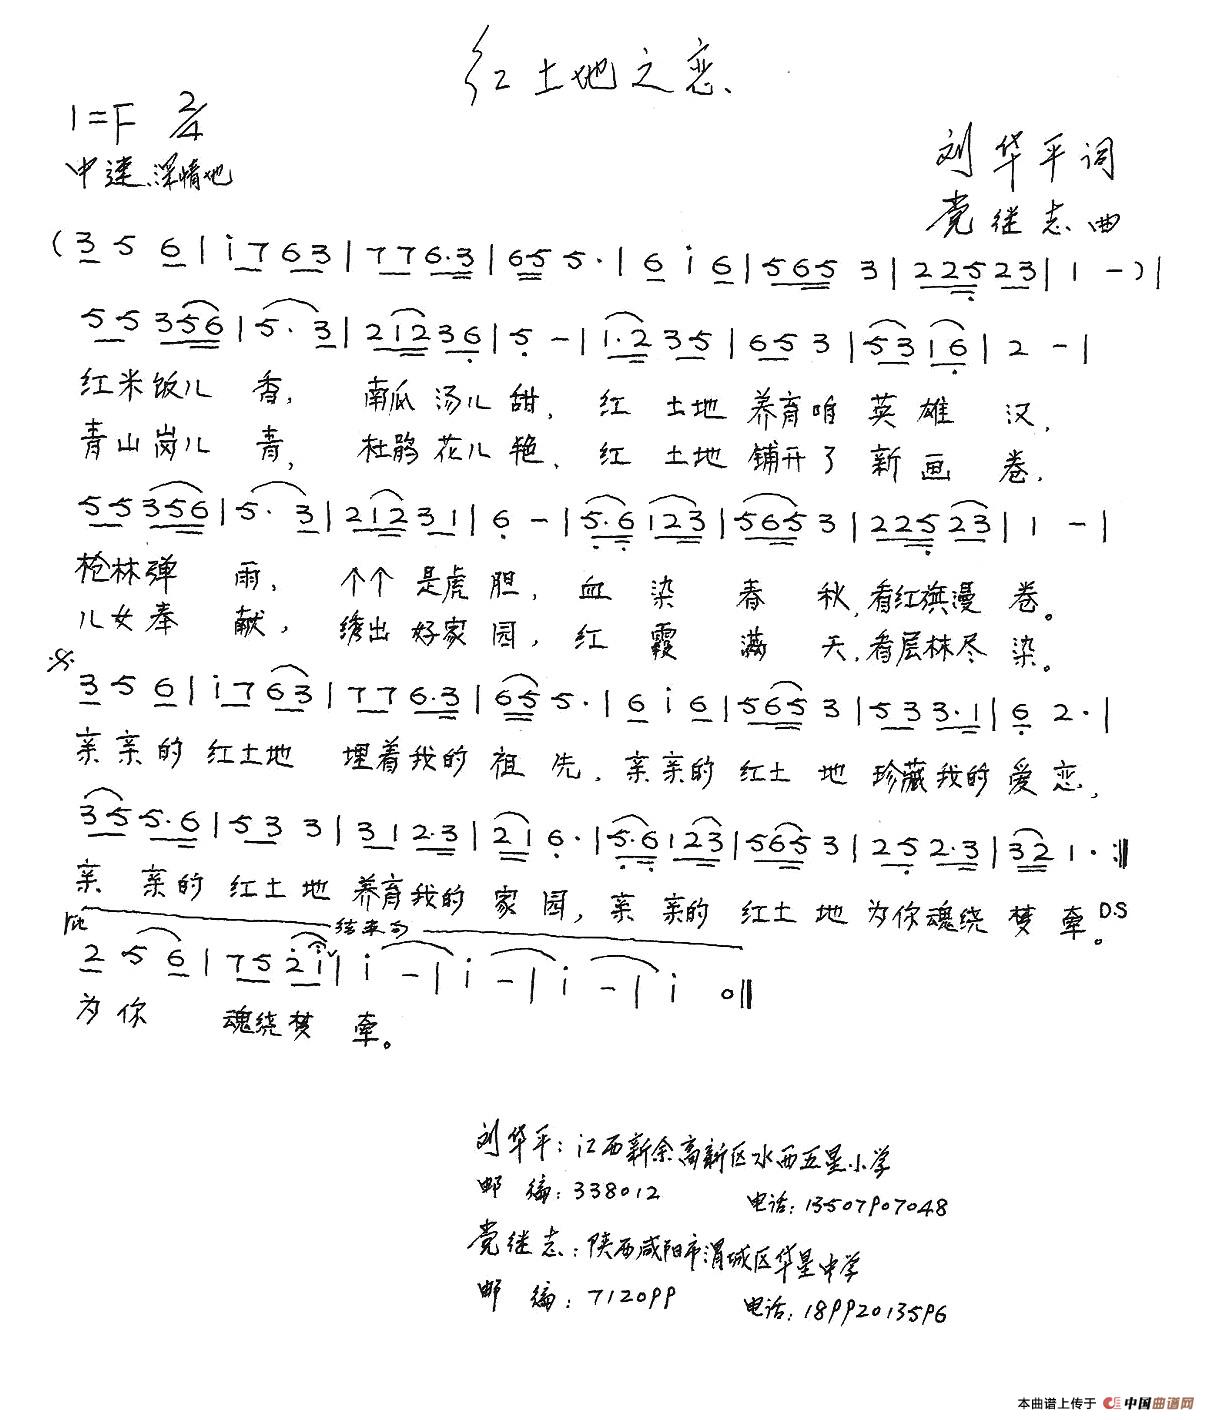 红土地之恋
1=F 2/4
中速 深情地
刘华平词
党继志曲
(3 5 6 | i 7 6 3 | 7 7 6·3 | 6 5 5 · | 6 i 6 | 5 6 5 3 | 2 2 5 2 3 | 1 - ) |
5 5 3 5 6 | 5 · 3 | 2 1 2 3 6 | 5 - | 1·2 3 5 | 6 5 3 | 5 3 1 6 | 2 - |
红米饭儿 香， 南瓜 汤儿 甜， 红 土地 养育咱 英 雄 汉，
青山岗儿 青， 杜鹃 花儿 艳， 红 土地 铺开了 新 画 卷，
5 5 3 5 6 | 5 · 3 | 2 1 2 3 1 | 6 - | 5·6 1 2 3 | 5 6 5 3 | 2 2 5 2 3 | 1 - |
枪林弹 雨， 个个 是虎 胆， 血 染 春 秋，看红旗漫 卷。
儿女奉 献， 绣出 好家 园， 红 霞 满 天，看层林尽 染。
3 5 6 | i 7 6 3 | 7 7 6·3 | 6 5 5 · | 6 i 6 | 5 6 5 3 | 5 3 3·1 | 6 2 · |
亲 亲 的 红土地 埋着我的 祖 先，亲 亲的 红土 地 珍藏我的 爱 恋，
3 5 5·6 | 5 3 3 | 3 1 2·3 | 2 1 6 · | 5·6 1 2 3 | 5 6 5 3 | 2 5 2·3 | 3 2 1 · :‖
亲 亲的 红土 地 养育我的 家 园，亲 亲的 红土 地 为你魂绕 梦 牵。 D.S
结束句
2 5 6 | 7 5 2 i | i - | i - | i - | i 0 ‖
为 你 魂绕梦 牵。
刘华平：江西新余高新区水西五星小学
邮 编：338012 电话：13507907048
党继志：陕西咸阳市渭城区华星中学
邮 编：712099 电话：18992013596
本曲谱上传于 中国曲谱网